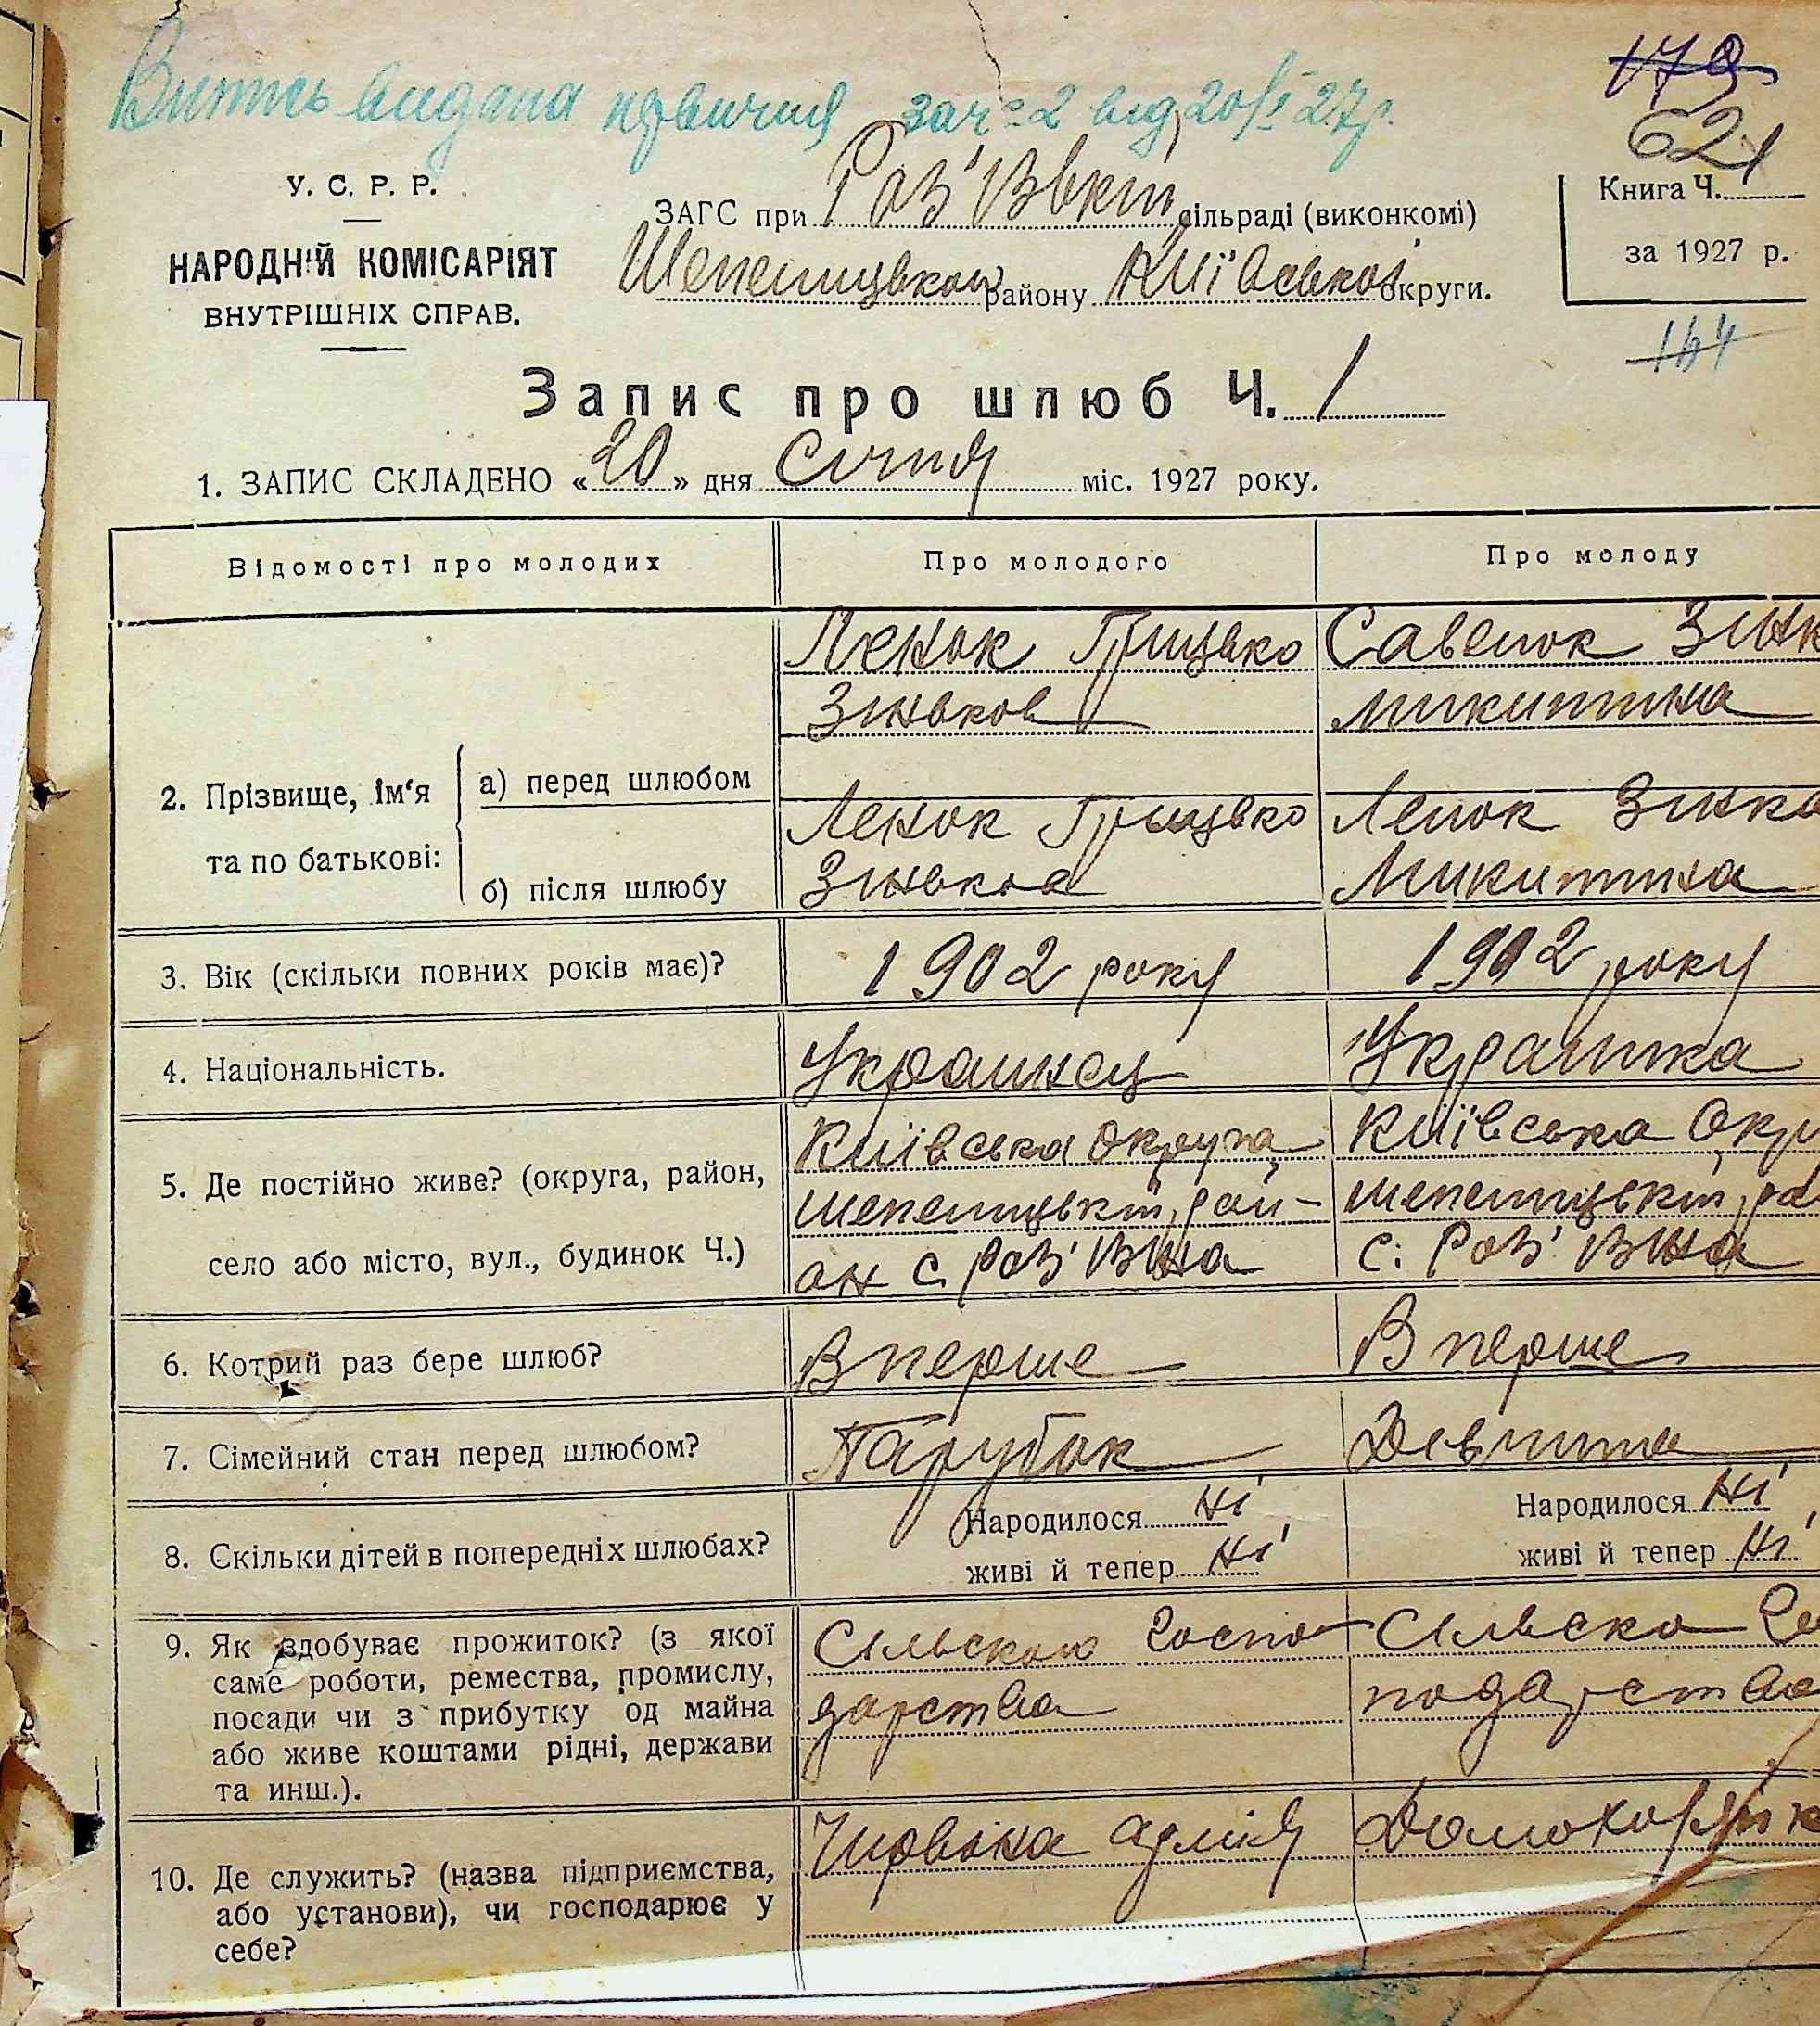 Витись видана первичня за ч. 2 від 20/I 27р.
179
62
У. С. Р. Р.
НАРОДНІЙ КОМІСАРІЯТ
ВНУТРІШНІХ СПРАВ.
ЗАГС при Роз'їзвкій сільраді (виконкомі)
Шепелицького району Київської округи.
Книга Ч. 1
за 1927 р.
164
Запис про шлюб Ч. 1
1. ЗАПИС СКЛАДЕНО «20» дня Січня міс. 1927 року.
Відомості про молодих
Про молодого
Про молоду
2. Прізвище, ім'я та по батькові:
а) перед шлюбом
Ленок Грицько
Зиньков
Савенок Зинк
Микитина
б) після шлюбу
Ленок Грицько
Зиньков
Ленок Зинка
Микитина
3. Вік (скільки повних років має)?
1902 року
1902 року
4. Національність.
Украинец
Украинка
5. Де постійно живе? (округа, район,
село або місто, вул., будинок Ч.)
Київська округа
шепелицький рай-
он с.
Київська Окру
шепелицький ра
с.
6. Котрий раз бере шлюб?
Вперше
Вперше
7. Сімейний стан перед шлюбом?
Парубок
Девчина
8. Скільки дітей в попередніх шлюбах?
Народилося Ні
живі й тепер Ні
Народилося Ні
живі й тепер Ні
9. Як здобуває прожиток? (з якої
саме роботи, ремества, промислу,
посади чи з прибутку од майна
або живе коштами рідні, держави
та инш.).
Сільском госпо
дарства
Сільско Го
подарства
10. Де служить? (назва підприємства,
або установи), чи господарює у
себе?
Червона армія
Домохозяйк